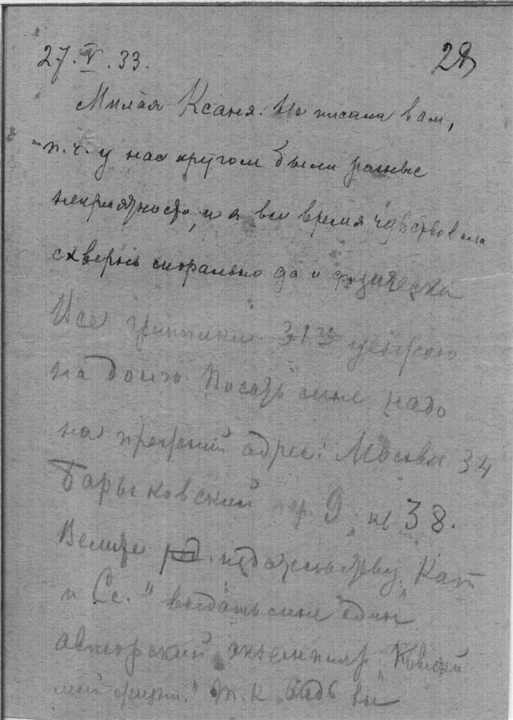 27.V.33. 28
Милая Ксаня. Не писала вам,
п.ч. у нас кругом были разные
неприятности, и я все время чувствовала
скверно морально да и физически
Все 31го уезжаю
на дачу. Писать мне надо
на прежний адрес: Москва 34
Барыковский пр. 9, к 38.
Велите издательству
и Сс." выдать мне один
авторский экземпляр
моей т.к. ведь вы